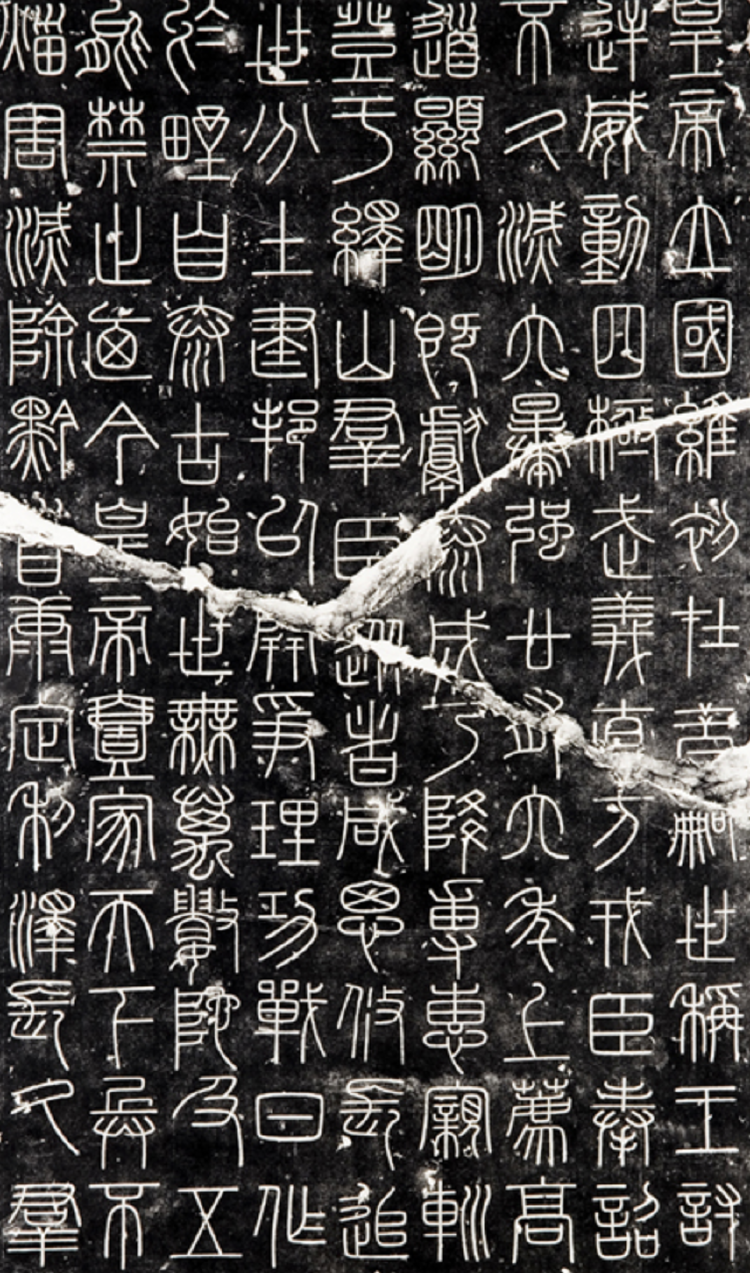 皇帝立國維初在昔嗣世稱王討
逆威動四極武義直方戎臣奉詔
不久滅六暴強廿有六年上薦高
道顯明既獻泰成乃降尃惠親巡
登于繹山群臣從者咸思攸長追
世分土建邦以開爭理功戰日作
於野自泰古始世無萬數陀及五
能禁止廼今皇帝壹家天下兵不
災害滅除黔首康定利澤長久群